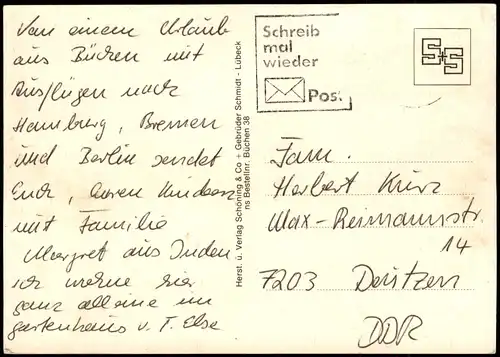 Von einem Urlaub
aus Büchen mit
Ausflügen nach
Hamburg, Bremen
und Berlin sendet
Euch, Euren Kindern
mit Familie
Margret aus Inden
ich wohne hier
ganz alleine im
Gartenhaus v. T. Else
Herst. u. Verlag Schöning & Co + Gebrüder Schmidt - Lübeck
ns Bestellnr. Büchen 38
Schreib
mal
wieder
Post
S+S
Fam.
Herbert Kurz
Max-Reimannstr.
14
7203 Deutzen
DDR